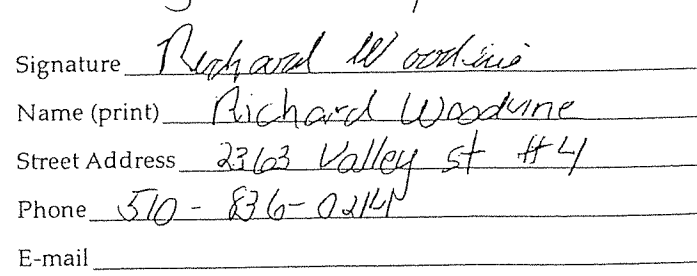 Signature Richard Woodvine
Name (print) Richard Woodvine
Street Address 2363 Valley st #4
Phone 510 - 836-
E-mail